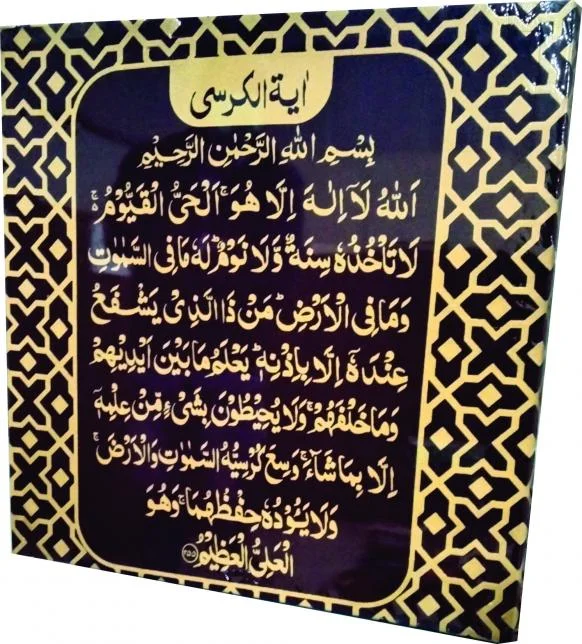 اٰیة الکرسی
بِسْمِ اللهِ الرَّحْمٰنِ الرَّحِيْمِ
اَللهُ لَاۤ اِلٰهَ اِلَّا هُوَ ۚ اَلْحَیُّ الْقَیُّوْمُ ۚ
لَا تَاْخُذُهٗ سِنَةٌ وَّلَا نَوْمٌ ؕ لَهٗ مَا فِی السَّمٰوٰتِ
وَمَا فِی الْاَرْضِ ؕ مَنْ ذَا الَّذِیْ یَشْفَعُ
عِنْدَهٗۤ اِلَّا بِاِذْنِهٖ ؕ یَعْلَمُ مَا بَیْنَ اَیْدِیْهِمْ
وَمَا خَلْفَهُمْ ۚ وَلَا یُحِیْطُوْنَ بِشَیْءٍ مِّنْ عِلْمِهٖۤ
اِلَّا بِمَا شَآءَ ۚ وَسِعَ كُرْسِیُّهُ السَّمٰوٰتِ وَالْاَرْضَ ۚ
وَلَا یَـُٔوْدُهٗ حِفْظُهُمَا ۚ وَهُوَ
الْعَلِیُّ الْعَظِیْمُ ﴿۲۵۵﴾